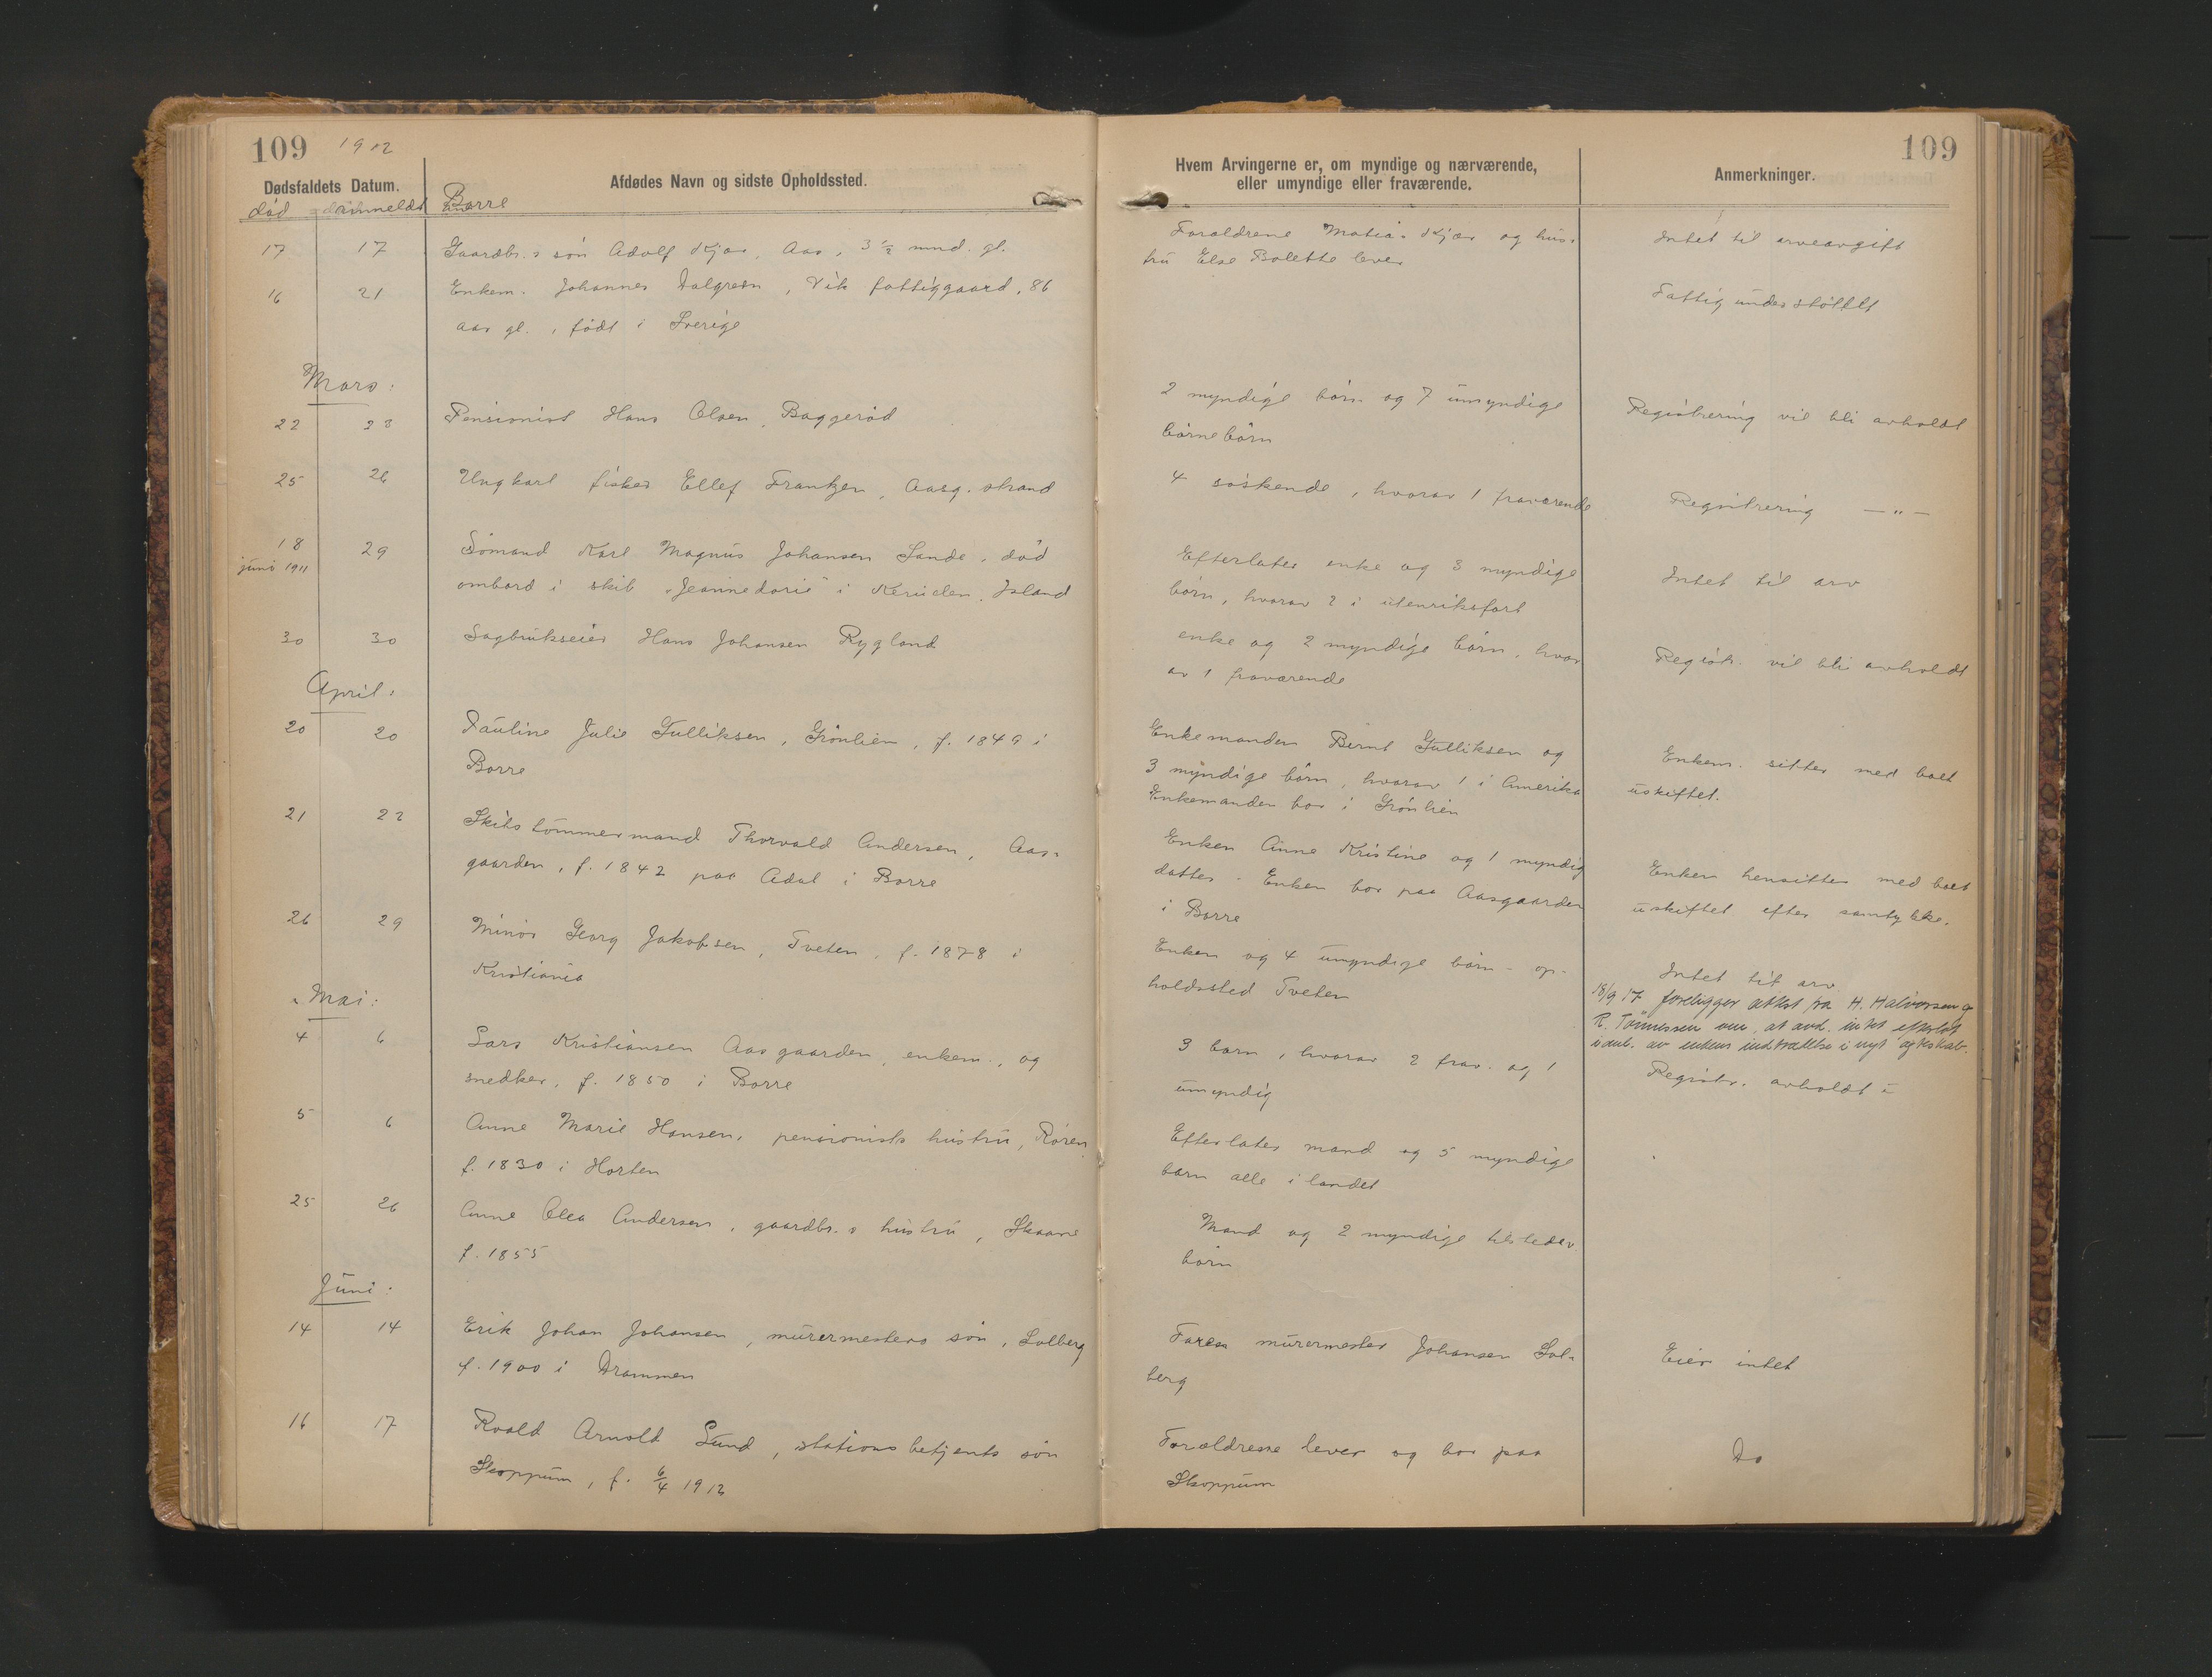 109 1912
109
Dødsfaldets Datum.
Afdødes Navn og sidste Opholdssted.
Hvem Arvingerne er, om myndige og nærværende,
eller umyndige eller fraværende.
Anmerkninger.
død anmeldt Borre
17 17 Gaardbr.s søn Adolf Kjær, Aas, 3 ½ mnd. gl.
Forældrene Matias Kjær og hus-
tru Else Bolette lever
Intet til arveavgift
16 21 Enkem. Johannes Dalgreen, Vik fattiggaard, 86
aar gl., født i Sverige
Fattigunderstøttet
Mars.
22 23 Pensionist Hans Olsen, Baggerød
2 myndige børn og 7 umyndige
børnebørn
Registrering vil bli avholdt
25 26 Ungkarl fisker Ellef Frantzen, Aasg.strand
4 søskende, hvorav 1 fraværende
Registrering — " —
18 29 Sømand Karl Magnus Johansen Sande, død
juni 1911
ombord i skib "Jeannedoric" i Island
Efterlater enke og 3 myndige
børn, hvorav 2 i utenriksfart
Intet til arv
30 30 Sagbrukseier Hans Johansen Rygland
enke og 2 myndige børn, hvor
av 1 fraværende
Registr. vil bli avholdt
April:
20 20 Pauline Julie Gulliksen, Grønlien, f. 1849 i
Borre
Enkemanden Bernt Gulliksen og
3 myndige børn, hvorav 1 i Amerika
Enkemanden bor i Grønlien
Enkem. sitter med boet
uskiftet.
21 22 Skibstømmermand Thorvald Andersen, Aas-
gaarden, f. 1842 paa Adal i Borre
Enken Anne Kristine og 1 myndig
datter - Enken bor paa Aasgaarden
i Borre
Enken hensitter med boet
uskiftet efter samtykke.
26 29 Minør Georg Jakobsen, Tveten, f. 1878 i
Kristiania
Enken og 4 umyndige børn - op-
holdssted Tveten
Intet til arv
18/9 17 foreligger attest fra H. Halvorsen og
R. Tønnessen om, at avd. intet efterlot
i anl. av enkens indtrædelse i nyt egteskab.
Mai:
4 6 Lars Kristiansen Aasgaarden, enkem., og
snedker, f. 1850 i Borre
3 barn, hvorav 2 frav. og 1
umyndig
Registr. avholdt
5 6 Anne Marie Hansen, pensionists hustru, Røren
f. 1830 i Horten
Efterlater mand og 5 myndige
barn alle i landet
25 26 Anne Olea Andersen, gaardbr.s hustru, Skaane
f. 1855
Mand og 2 myndige tilstedev.
børn
Juni:
14 14 Erik Johan Johansen, murermesters søn, Solberg
f. 1900 i Drammen
Faren murermester Johansen Sol-
berg
Eier intet
16 17 Roald Arnolt Lund, stationsbetjents søn
Skoppum, f. 6/4 1912
Forældrene lever og bor paa
Skoppum
Do